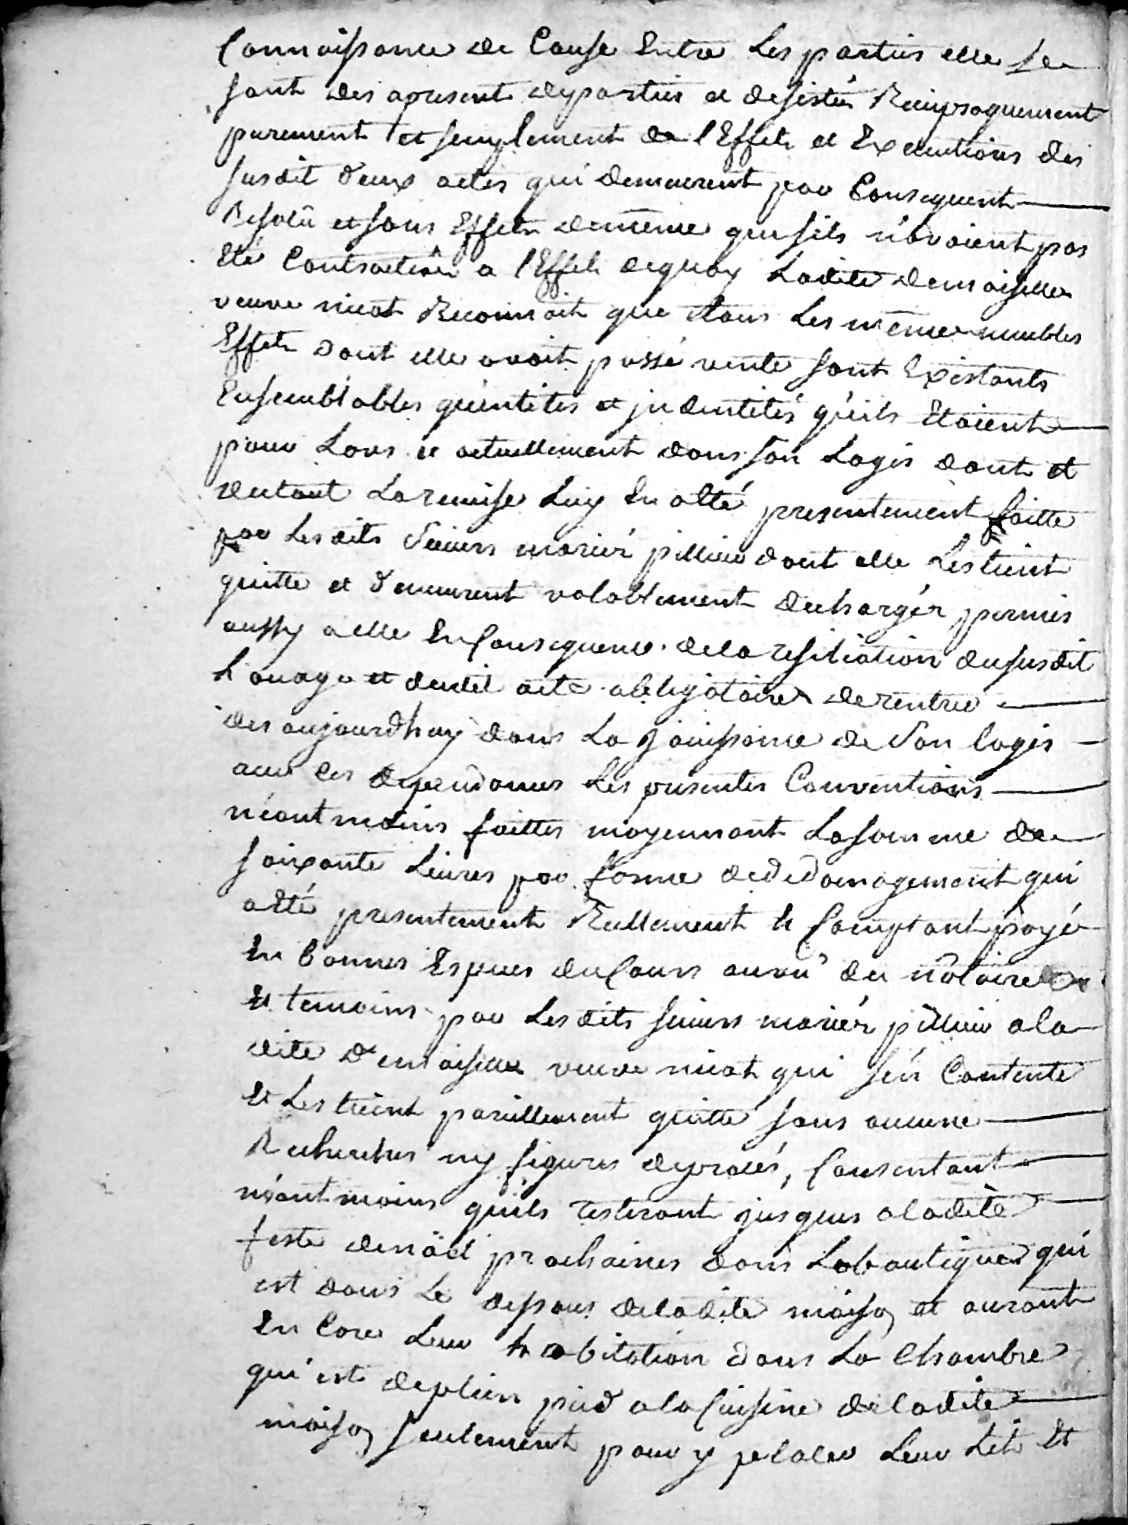 Connoissance de Cause Entre Les parties elles se
sont des apresent departies et desistés Reciproquement
purement et simplement de l'Effets et Executions des
susdit deux actes qui demeurent par Consequent
Resolû et sans Effets demême que s'ils n'avoient pas
Eté Contractées a l'Effets dequoy Ladite demoiselle
veuve nicot Reconnoit que tous Les mêmes meubles
Effets dont elle avoit passé vente sont Existants
Ensemblables quéntités et jndentités qu'ils Etoient
pour Lors et actuellement dans son Logis dont et
detout La remise Luy En a Eté presentement faitte
par Lesdits sieurs mariér pillieu dont elle Les tient
quitte et demeurent valablement dechargér permis
aussy a elle En Consequence de la resiliation du susdit
Louage et dudit acte obligatoire de rentrer
des aujourdhuy dans La jouissance de son logis
avec ces dependances Les presentes Conventions
néantmoins faittes moyennant La somme de
soixante Livres par forme de dedomagement qui
a Eté presentement Reellement et Comptant payé
En bonnes Especes du Cours au vû du nôtaire
Et temoins par Lesdits sieurs mariér pillieu a la
dite demoiselle veuve nicot qui s'en Contente
Et Les tient pareillement quitte sans aucune
Recherches ny figures de procés, Consentant
néantmoins qu'ils resteront jusques a ladite
feste de nöel prochaines dans La boutique qui
est dans Le dessous de ladite maison et auront
En Core Leur habitation dans La Chambre
qui est de plien pied a la Cuisine de ladite
maison seulement pour y placer Leur Lit Et